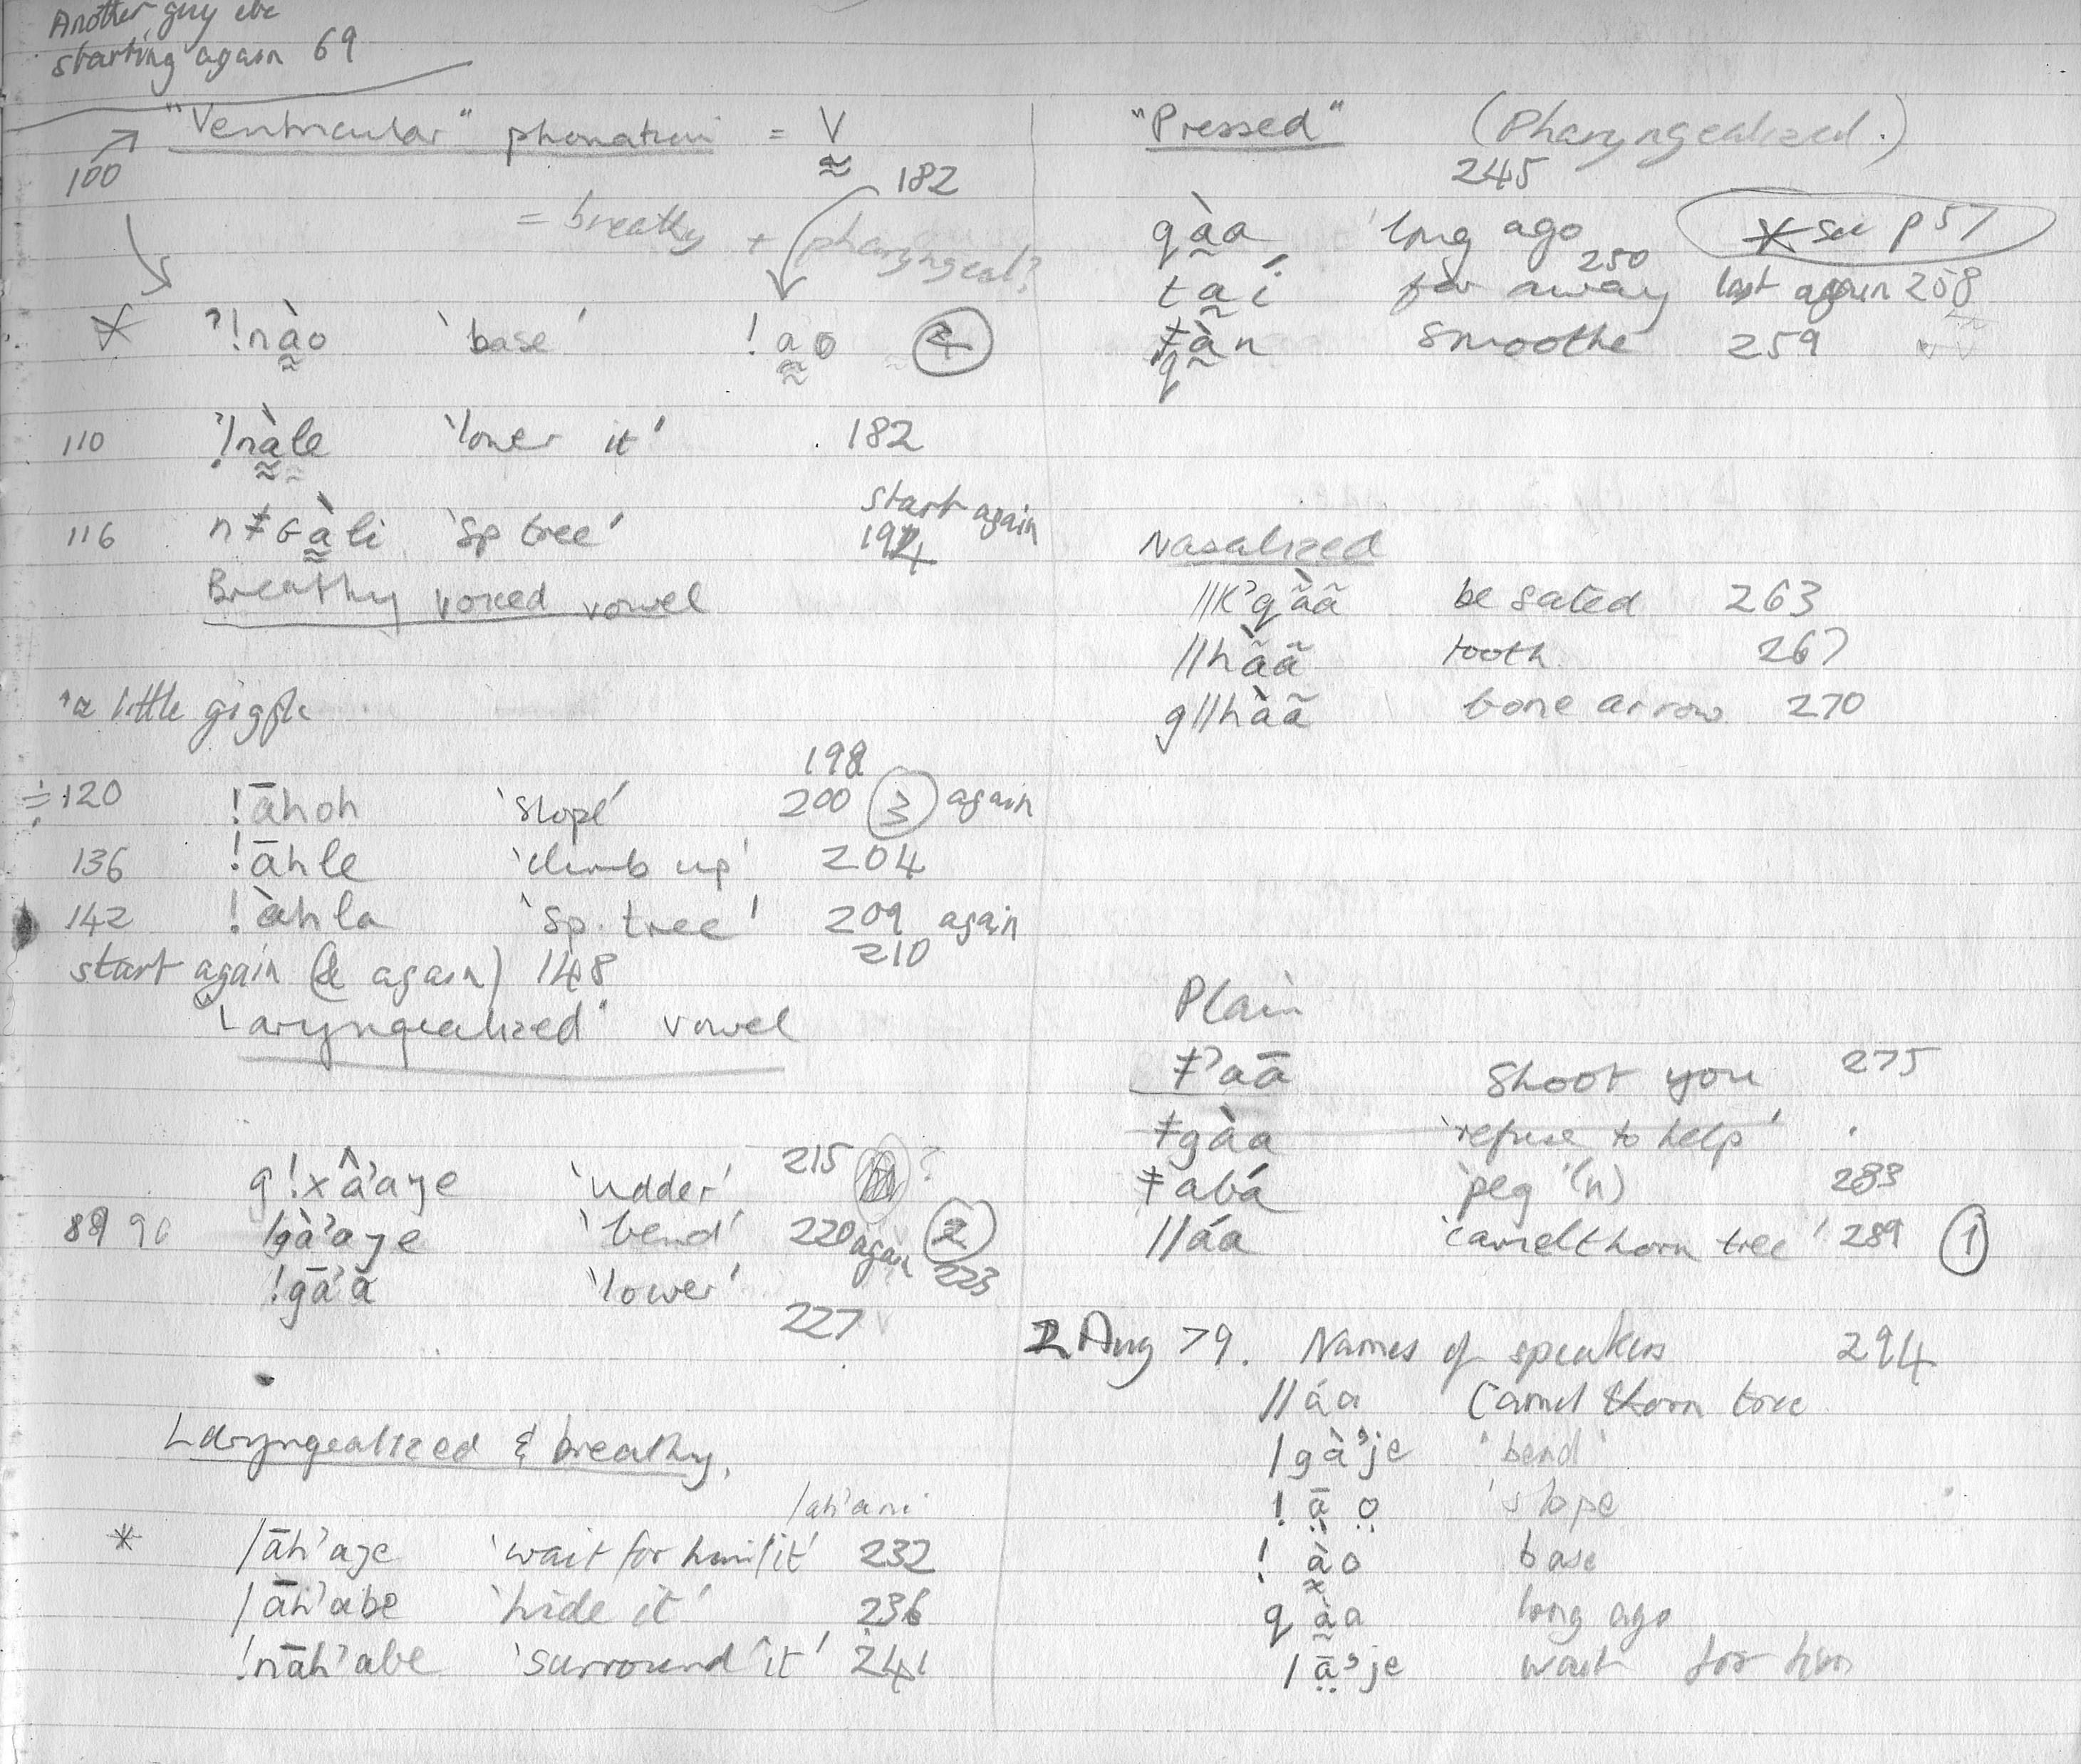 Another guy
starting again 69
100 "Ventricular" phonation = V̰̰
182
= breathy + pharyngeal?
ʔ!nà̰̰o 'base' !a̰̰o 4
110 ʔ!nà̰̰le 'lower it' 182
116 nǂɢà̰̰li 'sp tree' start again 194
Breathy voiced vowel
'a little giggle
198
120 !āhoh 'slope' 200 3 again
136 !āhle 'climb up' 204
142 !àhla 'sp. tree' 209 again
210
start again (& again) 148
"Laryngealized" vowel
g!xâ'aye 'udder' 215 ?
89 90 |gà'aye 'bend' 220 again 2
223
!gā'ā 'lower'
227
Laryngealized & breathy.
|ah'ani
* |āh'aje 'wait for him/it' 232
|āh'abe 'hide it' 236
!nāh'abe 'surround it' 241
"Pressed" (Pharyngealized.)
245
qà̰a 'long ago * see p 57
ta̰í far away 250 last again 258
ǂqà̰n smoothe 259
Nasalized
ǁk'qã̀ã be sated 263
ǁhã̀ã tooth 267
gǁhàã bone arrow 270
Plain
ǂ'aā Shoot you 275
ǂgàa 'refuse to help'
ǂabá 'peg' (n) 283
ǁáa 'camelthorn tree' 289 1
2 Aug 79. Names of speakers 294
ǁáa Camel thorn tree
|gà'je 'bend'
!ā̤o̤ 'slope
!à̰̰o base
qà̰a long ago
|ā̤'je wait for him